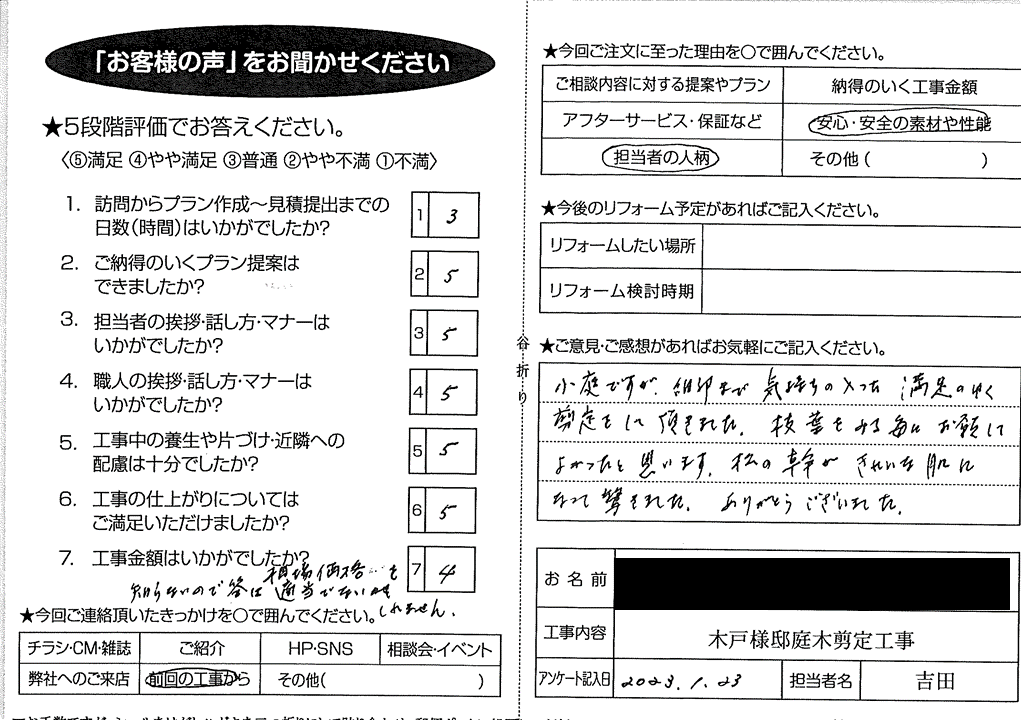 「お客様の声」をお聞かせください
★5段階評価でお答えください。
〈⑤満足 ④やや満足 ③普通 ②やや不満 ①不満〉
1. 訪問からプラン作成～見積提出までの
日数(時間)はいかがでしたか?
1 3
2. ご納得のいくプラン提案は
できましたか?
2 5
3. 担当者の挨拶・話し方・マナーは
いかがでしたか?
3 5
4. 職人の挨拶・話し方・マナーは
いかがでしたか?
4 5
5. 工事中の養生や片づけ・近隣への
配慮は十分でしたか?
5 5
6. 工事の仕上がりについては
ご満足いただけましたか?
6 5
7. 工事金額はいかがでしたか?
7 4
相場価格を
知らないので答は適当でないかも
しれません.
★今回ご連絡頂いたきっかけを○で囲んでください。
チラシ・CM・雑誌 ご紹介 HP・SNS 相談会・イベント
弊社へのご来店 前回の工事から その他( )
谷折り
★今回ご注文に至った理由を○で囲んでください。
ご相談内容に対する提案やプラン 納得のいく工事金額
アフターサービス・保証など 安心・安全の素材や性能
担当者の人柄 その他( )
★今後のリフォーム予定があればご記入ください。
リフォームしたい場所
リフォーム検討時期
★ご意見・ご感想があればお気軽にご記入ください。
小庭ですが、細部まで気持ちの入った満足のゆく
剪定をして頂きました。枝葉をみる毎にお願いして
よかったと思います。松の幹がきれいな肌に
なって驚きました。ありがとうございました。
お名前
工事内容 木戸様邸庭木剪定工事
アンケート記入日 2023.1.23 担当者名 吉田